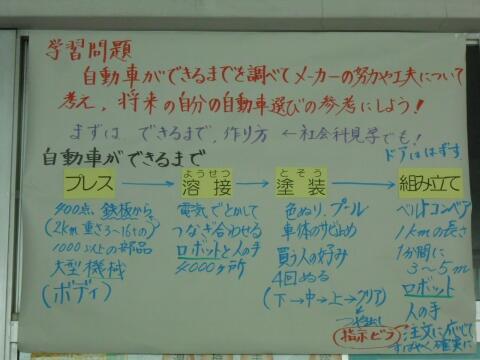 学習問題
自動車ができるまでを調べてメーカーの努力や工夫について
考え、将来の自分の自動車選びの参考にしよう!
まずは、できるまで、作り方 ←社会科見学でも!
自動車ができるまで
ドアははずす
プレス → 溶接 → 塗装 → 組み立て
ようせつ
とそう
400点、鉄板から
(2km 重さ3~16tの)
1000以上の部品
大型機械
(ボディ)
電気でとかして
つなぎ合わせる
ロボットと人の手
4000ヶ所
色ぬり、プール
車体のサビ止め
買う人の好み
4回ぬる
(下→中→上→クリア)
つや出し
ベルトコンベア
1kmの長さ
1分間に
3~5m
ロボット
人の手
指示ビラ
注文に応じて
すばやく確実に